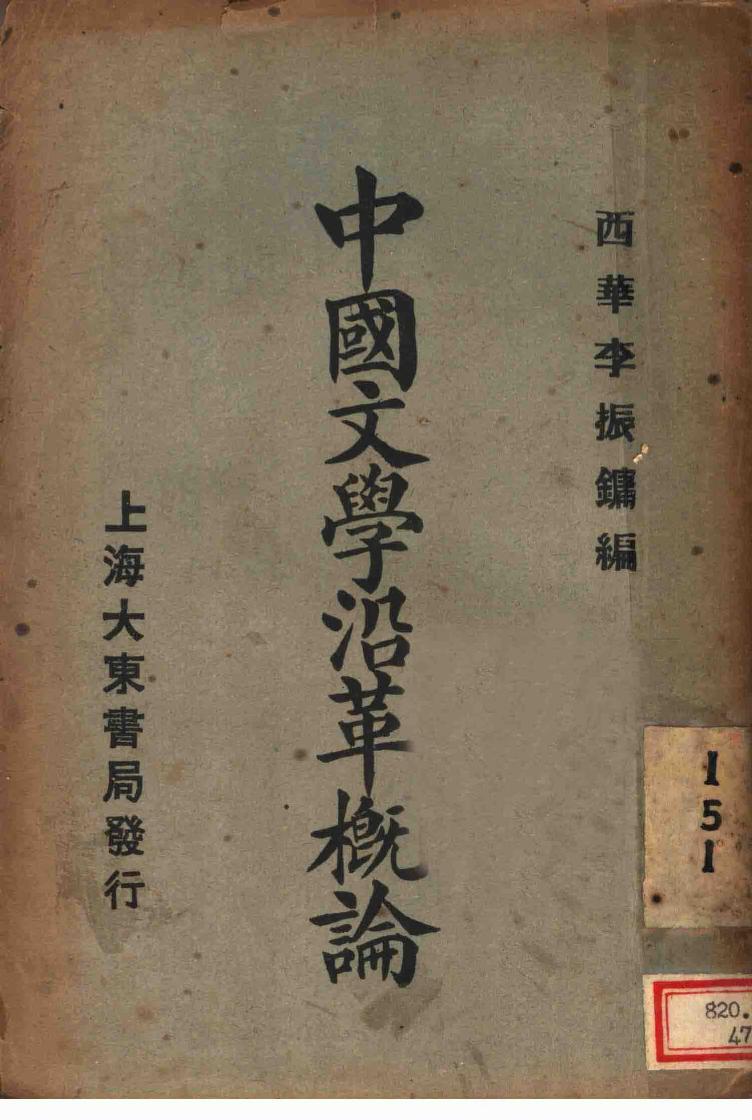 西華李振鏞編
中國文學沿革概論
上海大東書局發行
151
820.
47